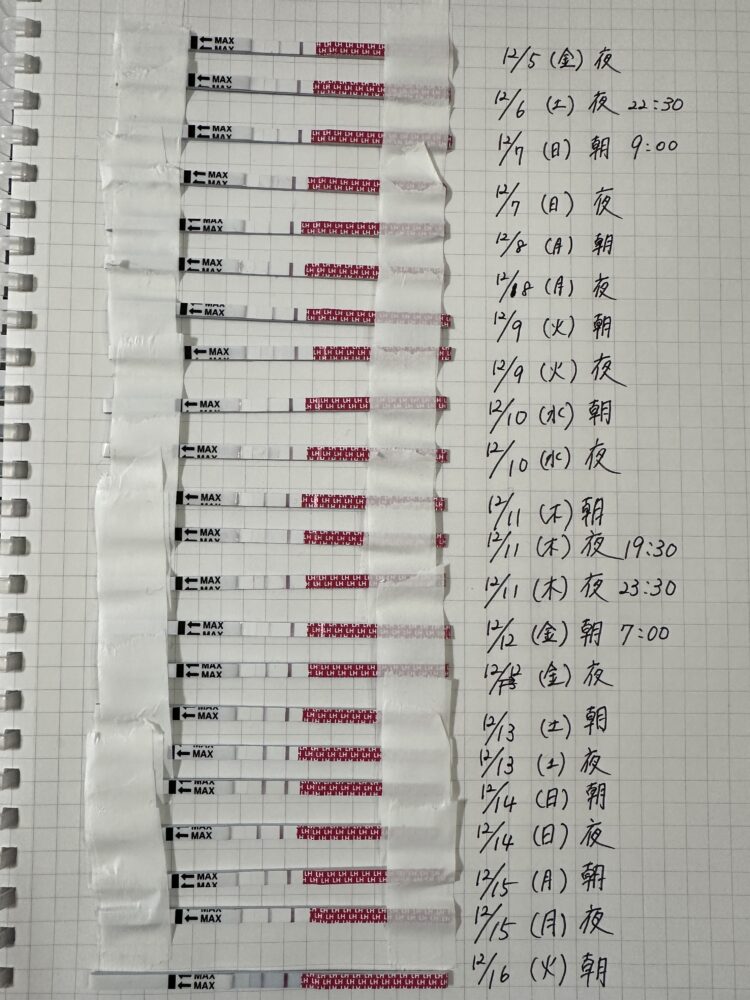 MAX MAX LH LH LH LH LH LH 12/5 (金) 夜
MAX MAX LH LH LH LH LH LH 12/6 (土) 夜 22:30
MAX MAX LH LH LH LH LH LH 12/7 (日) 朝 9:00
MAX MAX LH LH LH LH LH LH 12/7 (日) 夜
MAX MAX LH LH LH LH LH LH 12/8 (月) 朝
MAX MAX LH LH LH LH LH LH 12/8 (月) 夜
MAX MAX LH LH LH LH LH LH 12/9 (火) 朝
MAX LH LH LH LH LH LH 12/9 (火) 夜
MAX MAX LH LH LH LH LH LH 12/10 (水) 朝
MAX MAX LH LH LH LH LH LH 12/10 (水) 夜
MAX LH LH LH LH LH LH 12/11 (木) 朝
MAX MAX LH LH LH LH LH LH 12/11 (木) 夜 19:30
MAX MAX LH LH LH LH LH LH 12/11 (木) 夜 23:30
MAX MAX LH LH LH LH LH LH 12/12 (金) 朝 7:00
MAX LH LH LH LH LH LH 12/12 (金) 夜
MAX MAX LH LH LH LH LH LH 12/13 (土) 朝
MAX MAX LH LH LH LH LH LH 12/13 (土) 夜
MAX MAX LH LH LH LH LH LH 12/14 (日) 朝
MAX MAX LH LH LH LH LH LH 12/14 (日) 夜
MAX MAX LH LH LH LH LH LH 12/15 (月) 朝
MAX MAX LH LH LH LH LH LH 12/15 (月) 夜
MAX MAX LH LH LH LH LH LH 12/16 (火) 朝